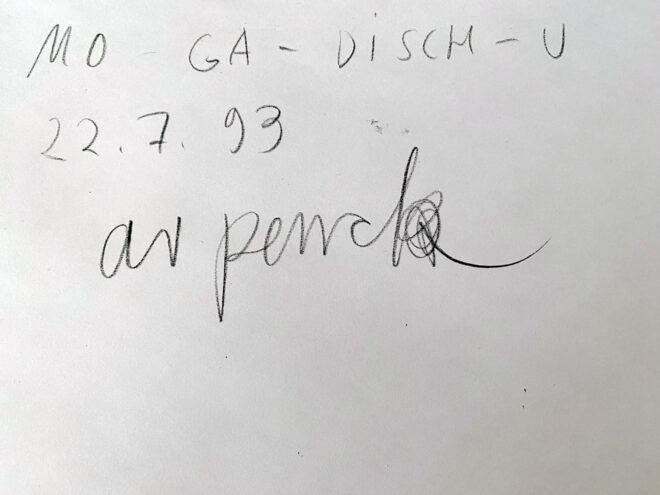 MO - GA - DISCH - U
22.7.93
ar penck